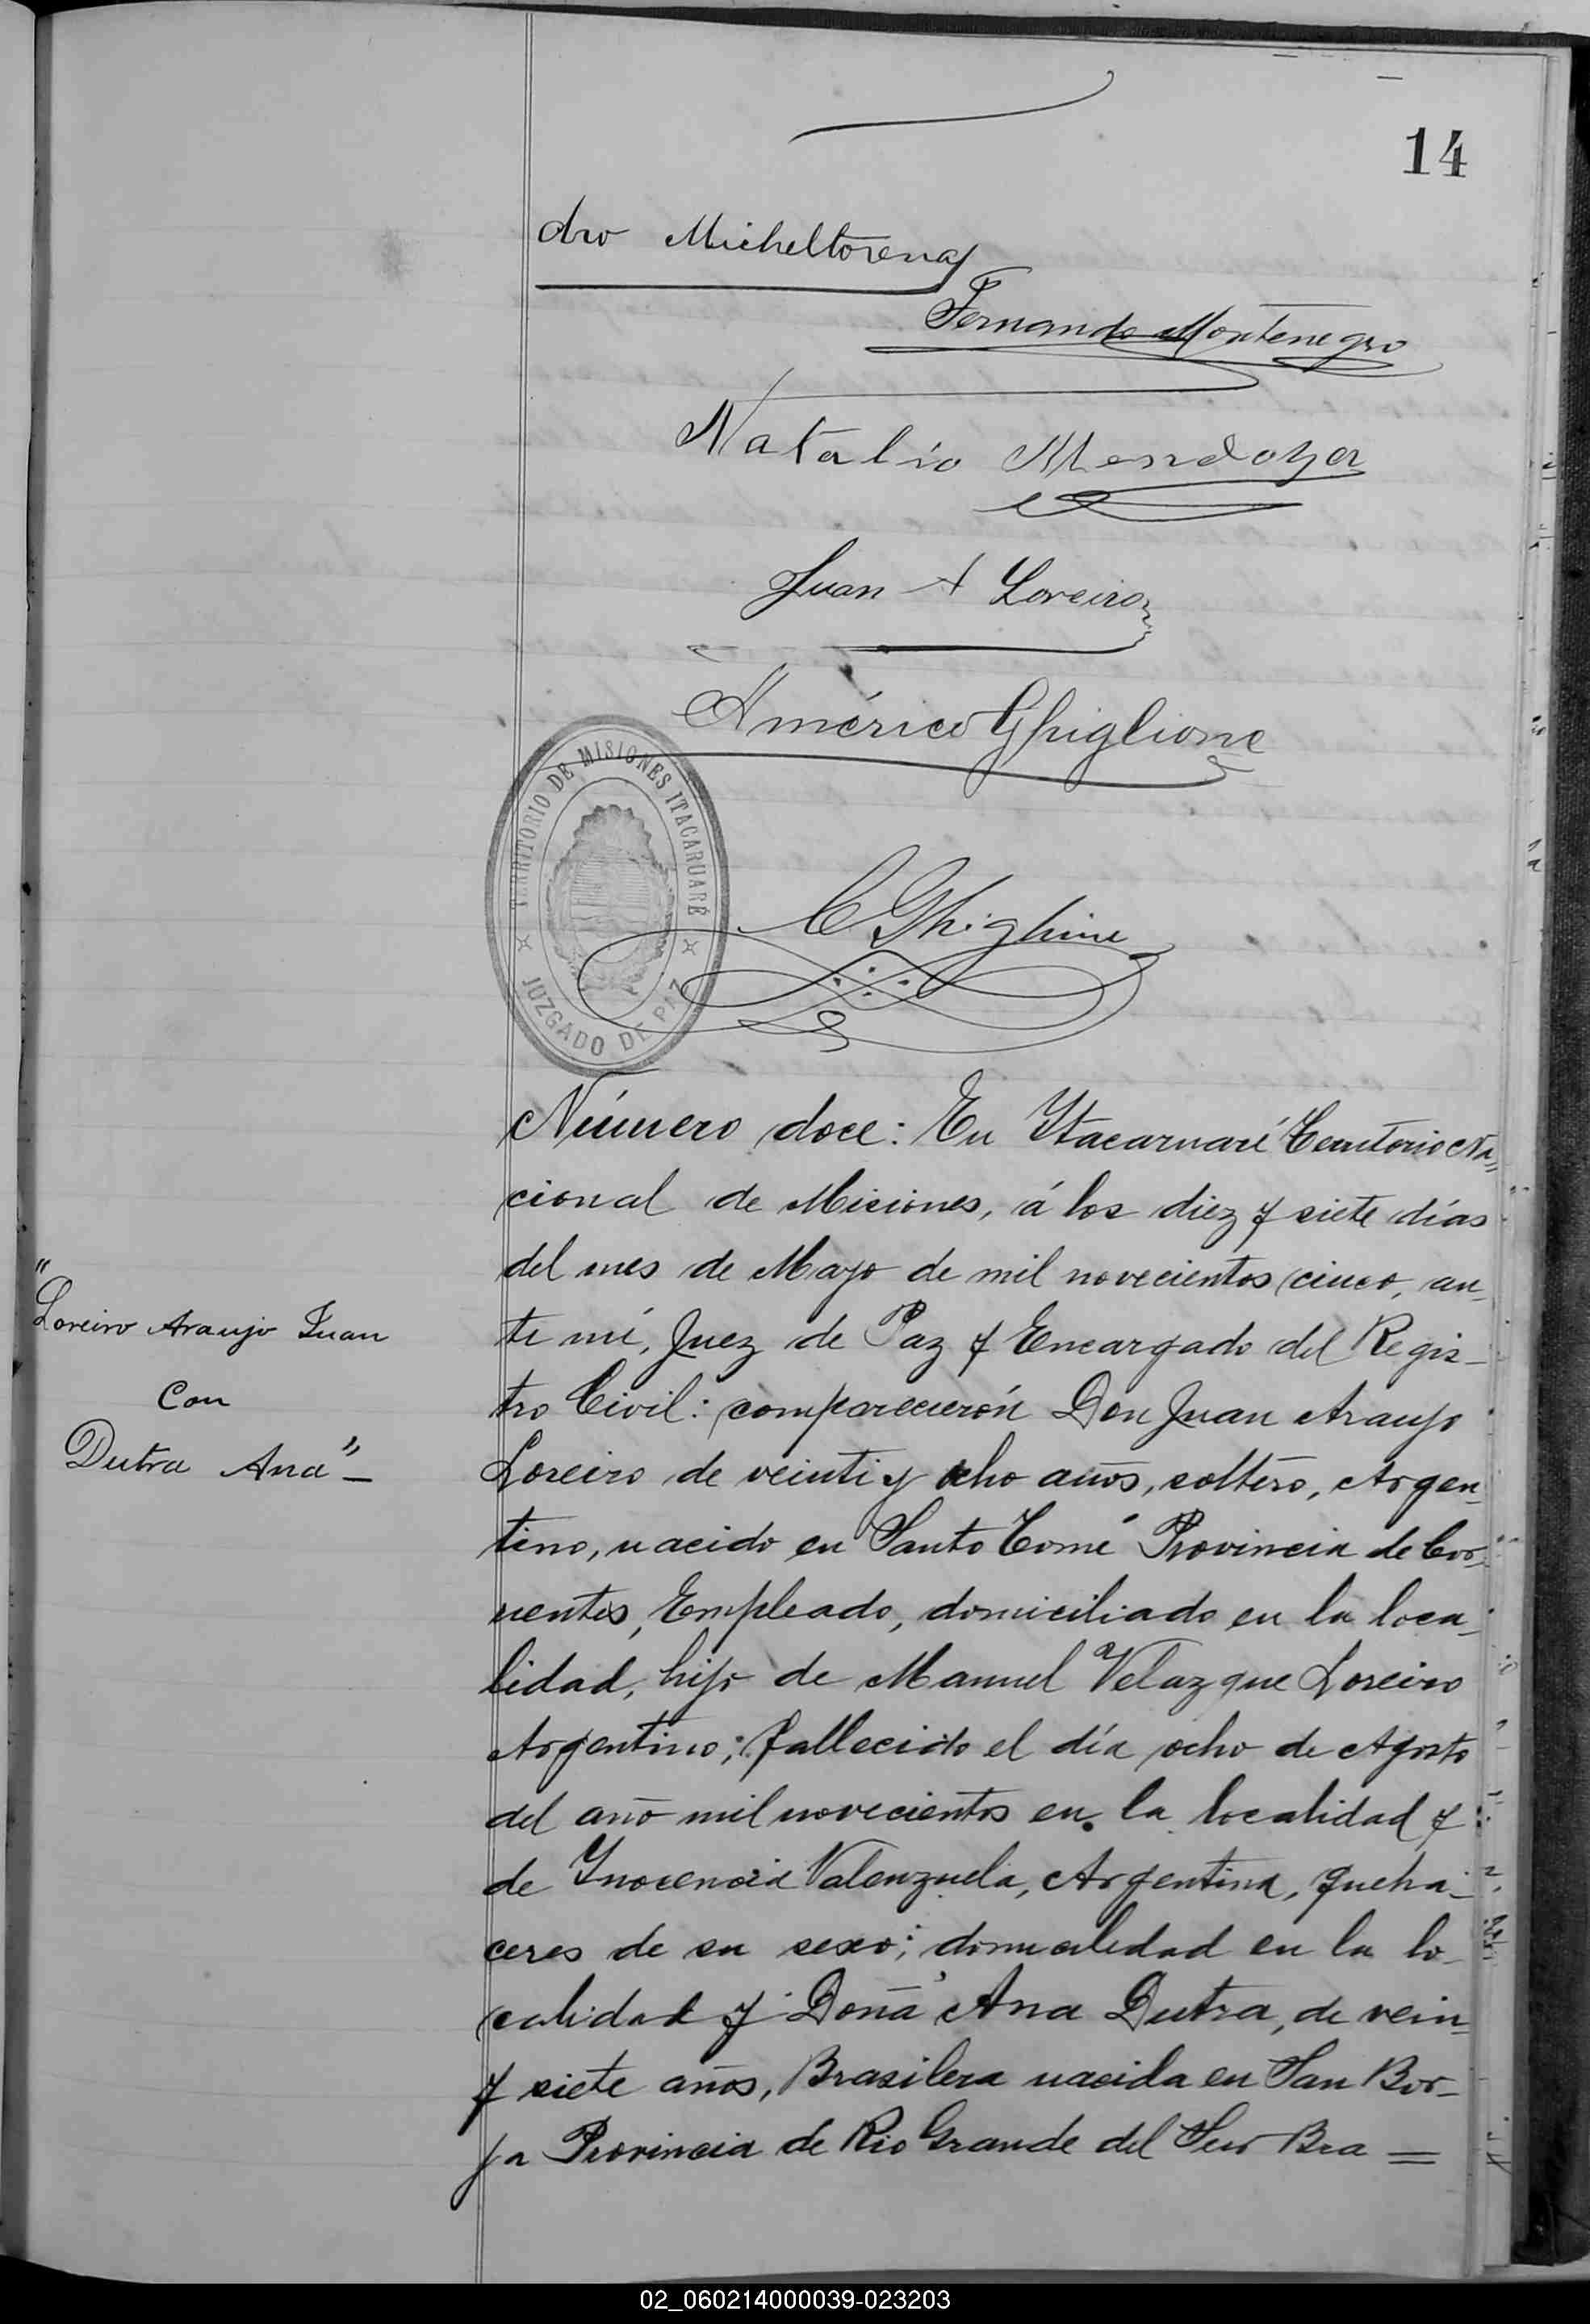 14
dro Micheltorena
Fernando Montenegro
Natalio Mendoza
Juan A Loreiro
Américo Ghiglione
TERRITORIO DE MISIONES ITACARUARÉ
JUZGADO DE PAZ
C Ghiglione
Número doce: En Ytacaruaré Territorio Na„
cional de Misiones, á los diez y siete días
del mes de Mayo de mil novecientos cinco, an_
te mí, Juez de Paz y Encargado del Regis_
tro Civil: comparecierón Don Juan Araujo
"Loreiro Araujo Juan
Con
Dutra Ana"_
Loreiro de veinti y ocho años, soltero, Argen_
tino, nacido en Santo Tomé Provincia de Cor_
rientes, Empleado, domiciliado en la loca_
lidad, hijo de Manuel Velazque Loreiro
Argentino; fallecido el día ocho de Agosto
del año mil novecientos en la localidad y
de Ynocencia Valenzuela, Argentina, queha_
ceres de su sexo; domicilidad en la lo_
calidad y Doña Ana Dutra, de vein_
y siete años, Brasilera nacida en San Bor_
ja Provincia de Rio Grande del Sur Bra =
02_060214000039-023203